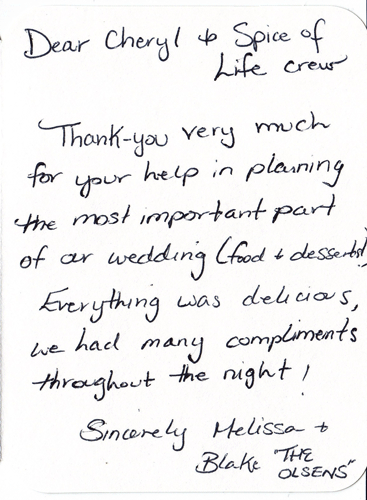 Dear Cheryl & Spice of
Life crew
Thank-you very much
for your help in planning
the most important part
of our wedding (food & desserts)
Everything was delicious,
we had many compliments
throughout the night!
Sincerely Melissa &
Blake "THE
OLSENS"